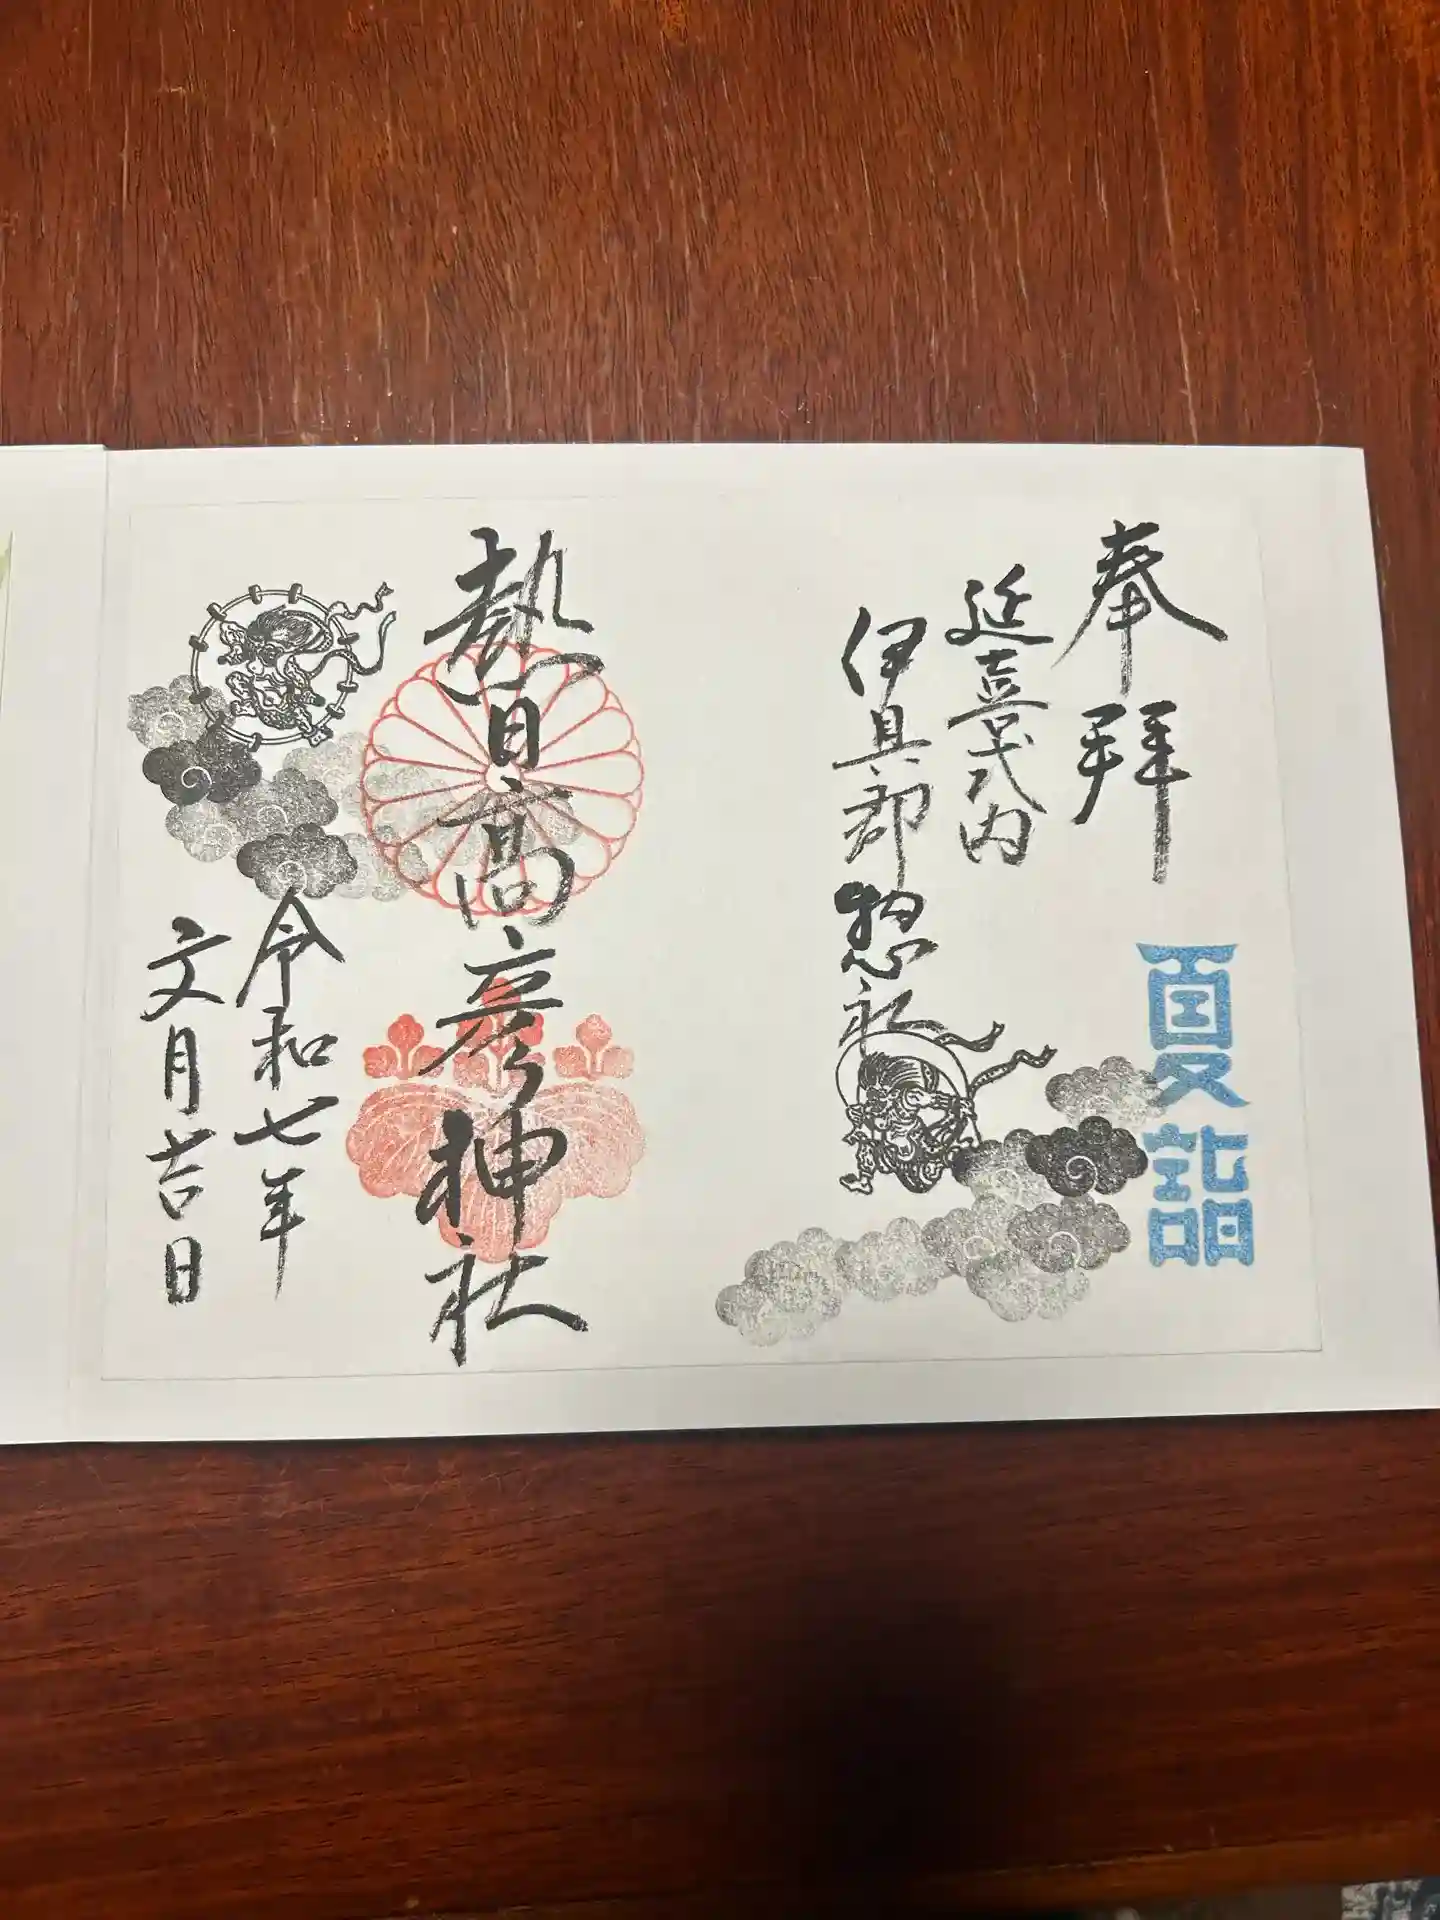 奉拝
夏詣
延喜式内
伊具郡惣社
熱日高彦神社
令和七年
文月吉日